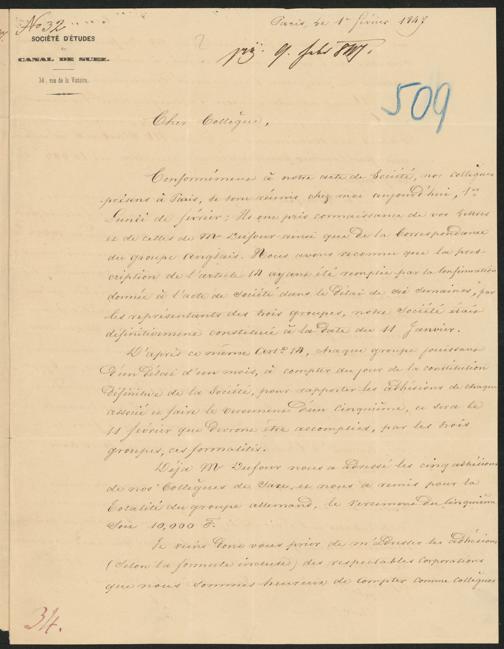 No 32
SOCIÉTÉ D'ÉTUDES
DU
CANAL DE SUEZ.
34, rue de la Victoire.
Paris, le 1er février 1847
prj. 9. febr 847.
509
Cher Collègue,
Conformément à notre acte de Société, nos collègues
présens à Paris, se sont réunis chez moi aujourd'hui, 1er
Lundi de février; ils ont pris connaissance de vos lettres
et de celles de Mr Dufour ainsi que de la Correspondance
du groupe anglais. Nous avons reconnu que la pres-
cription de l'article 14 ayant été remplie par la confirmation
donnée à l'acte de Société dans le délai de six semaines, par
les représentants des trois groupes, notre Société était
définitivement constituée à la date du 11 Janvier.
D'après ce même Art. 14, chaque groupe jouissant
d'un délai d'un mois, à compter du jour de la constitution
définitive de la Société, pour rapporter les adhésions de chaque
associé et faire le versement d'un cinquième, ce sera le
11 février que devront être accomplies, par les trois
groupes, ces formalités.
Déjà Mr Dufour nous a adressé les cinq adhésions
de nos Collègues de Saxe, et nous a remis pour la
totalité du groupe allemand, le versement du cinquième
soit 10,000 F.
Je viens donc vous prier de m'adresser les adhésions
(selon la formule incluse) des respectables corporations
que nous sommes heureux de compter comme collègues
34.